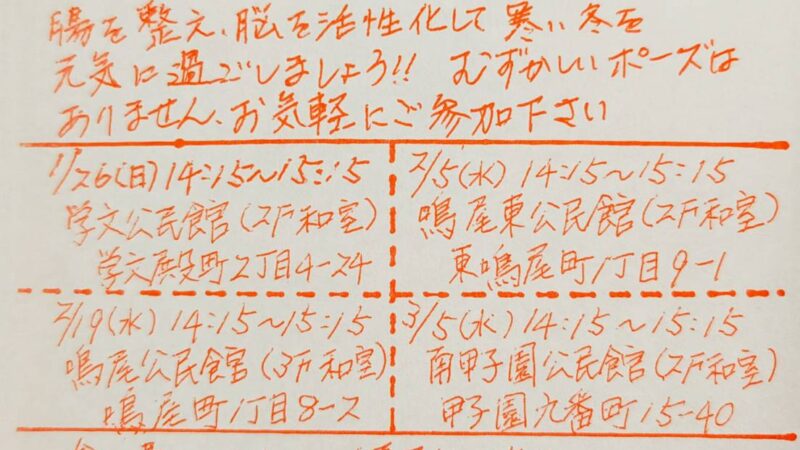 腸を整え、脳を活性化して寒い冬を
元気に過ごしましょう!! むずかしいポーズは
ありません、お気軽にご参加下さい
1/26(日) 14:15~15:15
学文公民館(2F和室)
学文殿町2丁目4-24
2/5(水) 14:15~15:15
鳴尾東公民館(2F和室)
東鳴尾町1丁目9-1
2/19(水) 14:15~15:15
鳴尾公民館(3F和室)
鳴尾町1丁目8-2
3/5(水) 14:15~15:15
南甲子園公民館(2F和室)
甲子園九番町15-40